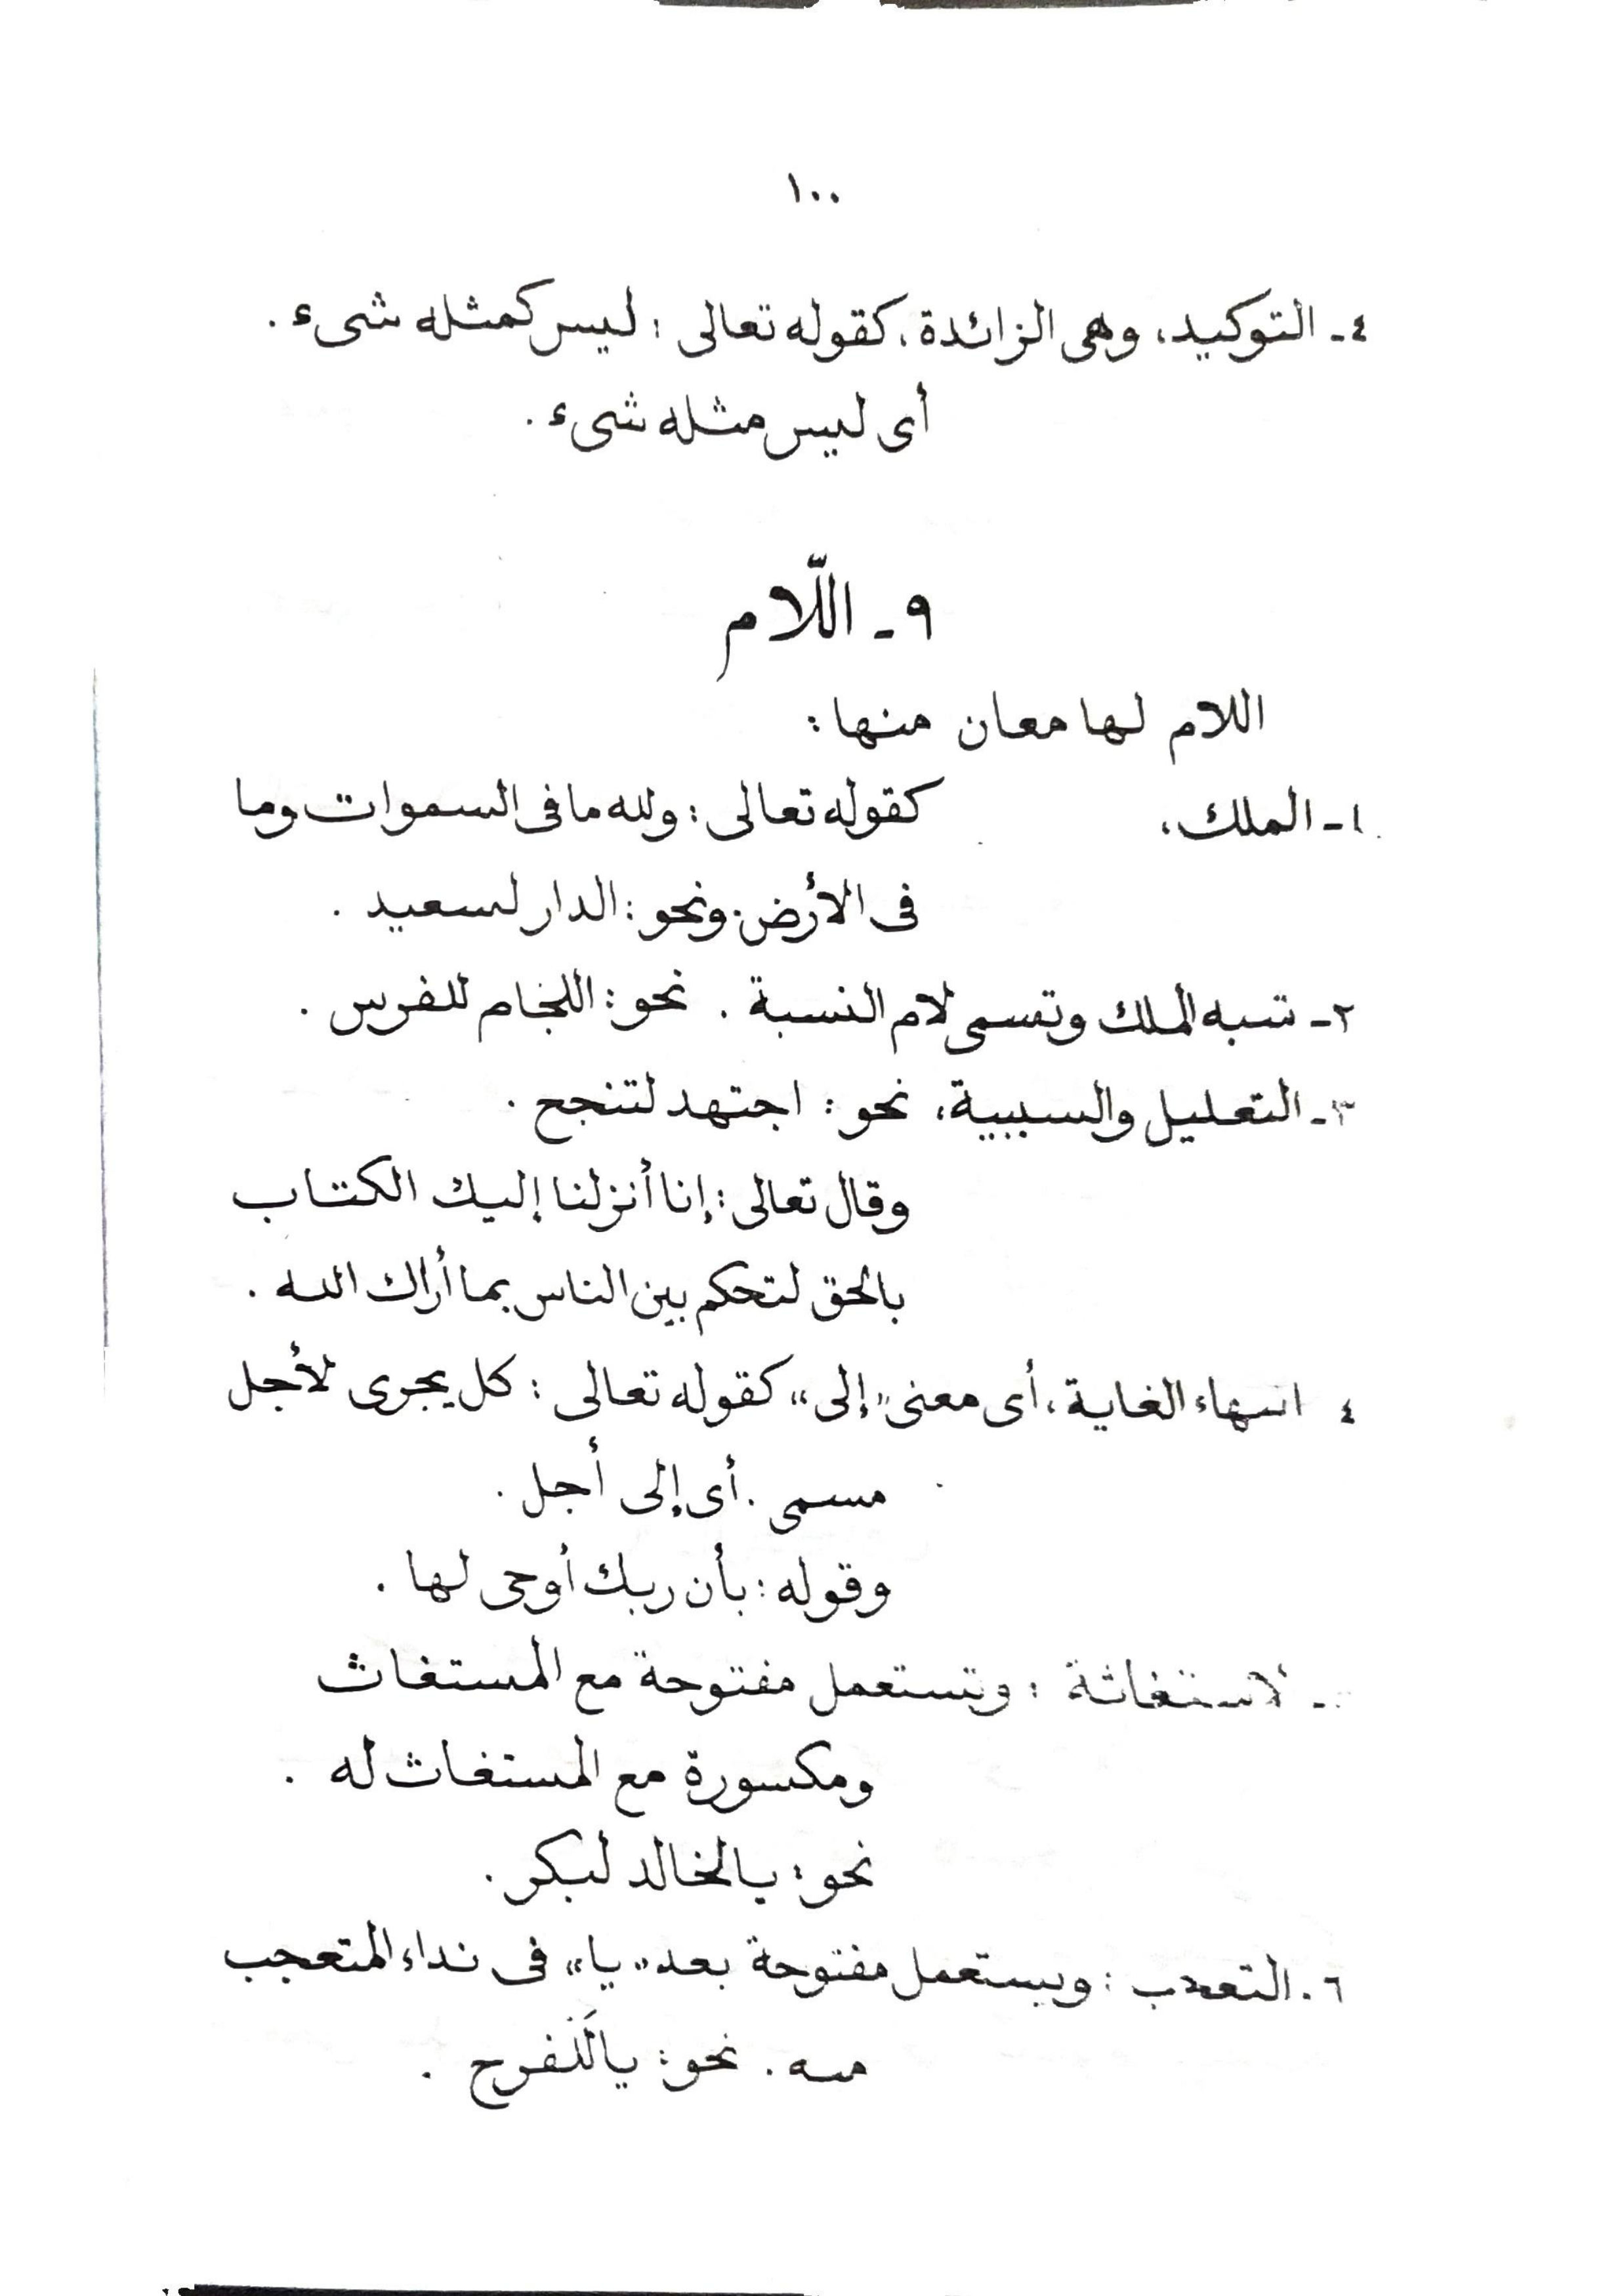 ١٠٠
٤ـ التوكيد، وهى الزائدة، كقوله تعالى : ليس كمثله شىء .
أى ليس مثله شىء .
٩ـ اللّام
اللام لها معان منها :
١ـ الملك، كقوله تعالى : ولله ما فى السموات وما
فى الأرض. ونحو : الدار لسعيد .
٢ـ شبه الملك وتسمى لام النسبة . نحو : اللجام للفرس .
٣ـ التعليل والسببية، نحو : اجتهد لتنجح .
وقال تعالى : إنا أنزلنا إليك الكتاب
بالحق لتحكم بين الناس بما أراك الله .
٤ انتهاء الغاية، أى معنى "إلى" كقوله تعالى : كل يجرى لأجل
مسمى . أى إلى أجل .
وقوله : بأن ربك أوحى لها .
ـ لاستغاثة : وتستعمل مفتوحة مع المستغاث
ومكسورة مع المستغاث له .
نحو : يا لخالد لبكر .
٦. التعجب : ويستعمل مفتوحة بعد "يا" فى نداء المتعجب
منه . نحو : يا لَلفرح .